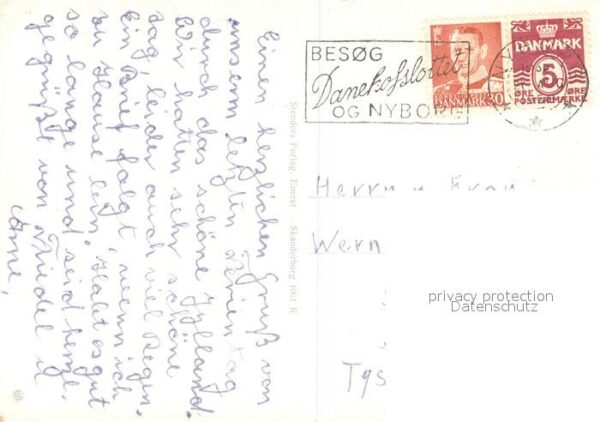 Einen herzlichen Gruß von
unserm letzten Ferientag
durch das schöne Jylland.
Wir hatten sehr schöne
Tag, leider auch viel Regen.
Ein Brief folgt, wenn ich
zu Hause bin. Habt es gut
so lange und seid herzl.
gegrüßt von Friedel u
Arne,
Stenders Forlag, Eneret — Skanderborg 1001 K
BESØG
Danehofslottet
OG NYBORG
DANMARK 30
DANMARK
5
ØRE ØRE
POSTFÆRGE MÆRKE
Herrn u Frau
Wern
Tys
privacy protection
Datenschutz